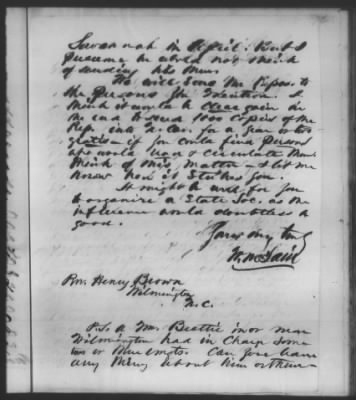 Savannah in April. But I
presume he would not think
of sending his Mem.
We will send the Papers to
the Persons you mention. I
think it would be clear gain in
the end to send 1000 copies of the
Rep. into N. Car. for a year or two
gratis - if you could find persons
who would read & circulate them
Think of this matter - & let me
know how it strikes you.
It might be well for you
to organize a State Soc. as the
influence would doubtless be
good.
Yours very truly
W. McLain
Rev. Henry Brown
Wilmington
N.C.
P.S. a Mr. Beattie in or near
Wilmington had in charge some
ten or Can you learn
any thing about him or them -